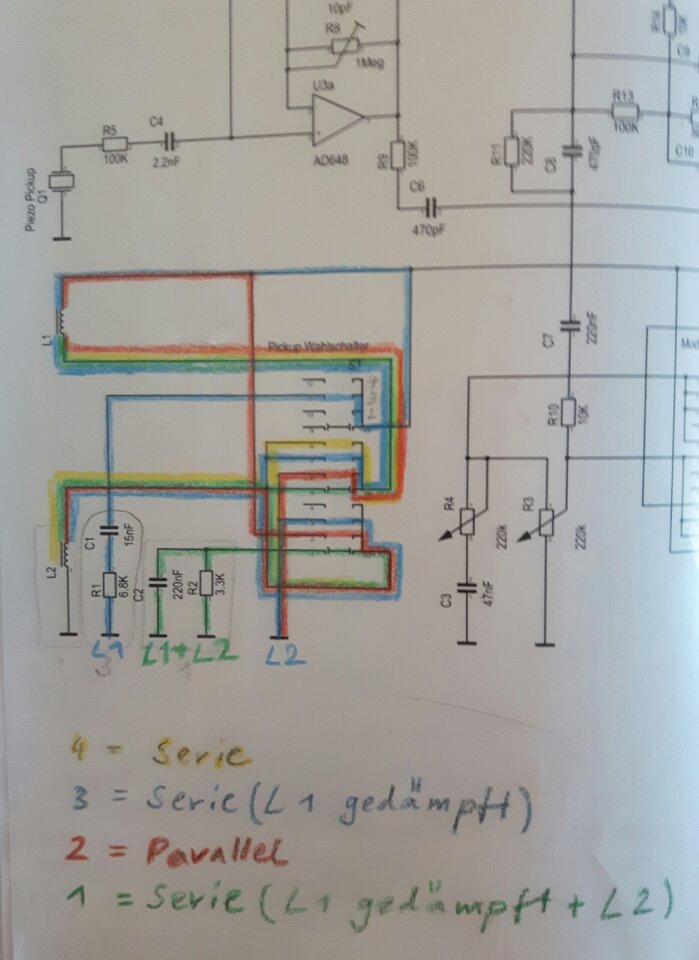 10pF
R8
1Meg
U3a
AD648
R5
100K
C4
2,2nF
Piezo Pickup
Q1
R9
100K
C6
470pF
R11
220K
C8
470pF
R13
100K
C9
C10
L1
Pickup Wahlschalter
C7
220nF
R10
10K
R4
220k
R3
220k
C3
47nF
L2
C1
15nF
R1
6,8K
C2
220nF
R2
3,3K
L1
L1+L2
L2
3
1
4 = Serie
3 = Serie (L1 gedämpft)
2 = Parallel
1 = Serie (L1 gedämpft + L2)